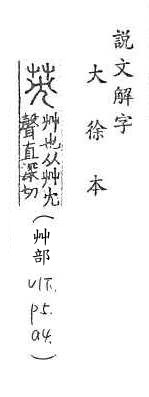 說文解字
大徐本
艸也从艸冘
聲直深切
(艸部
V1下.
p5.
a4.)